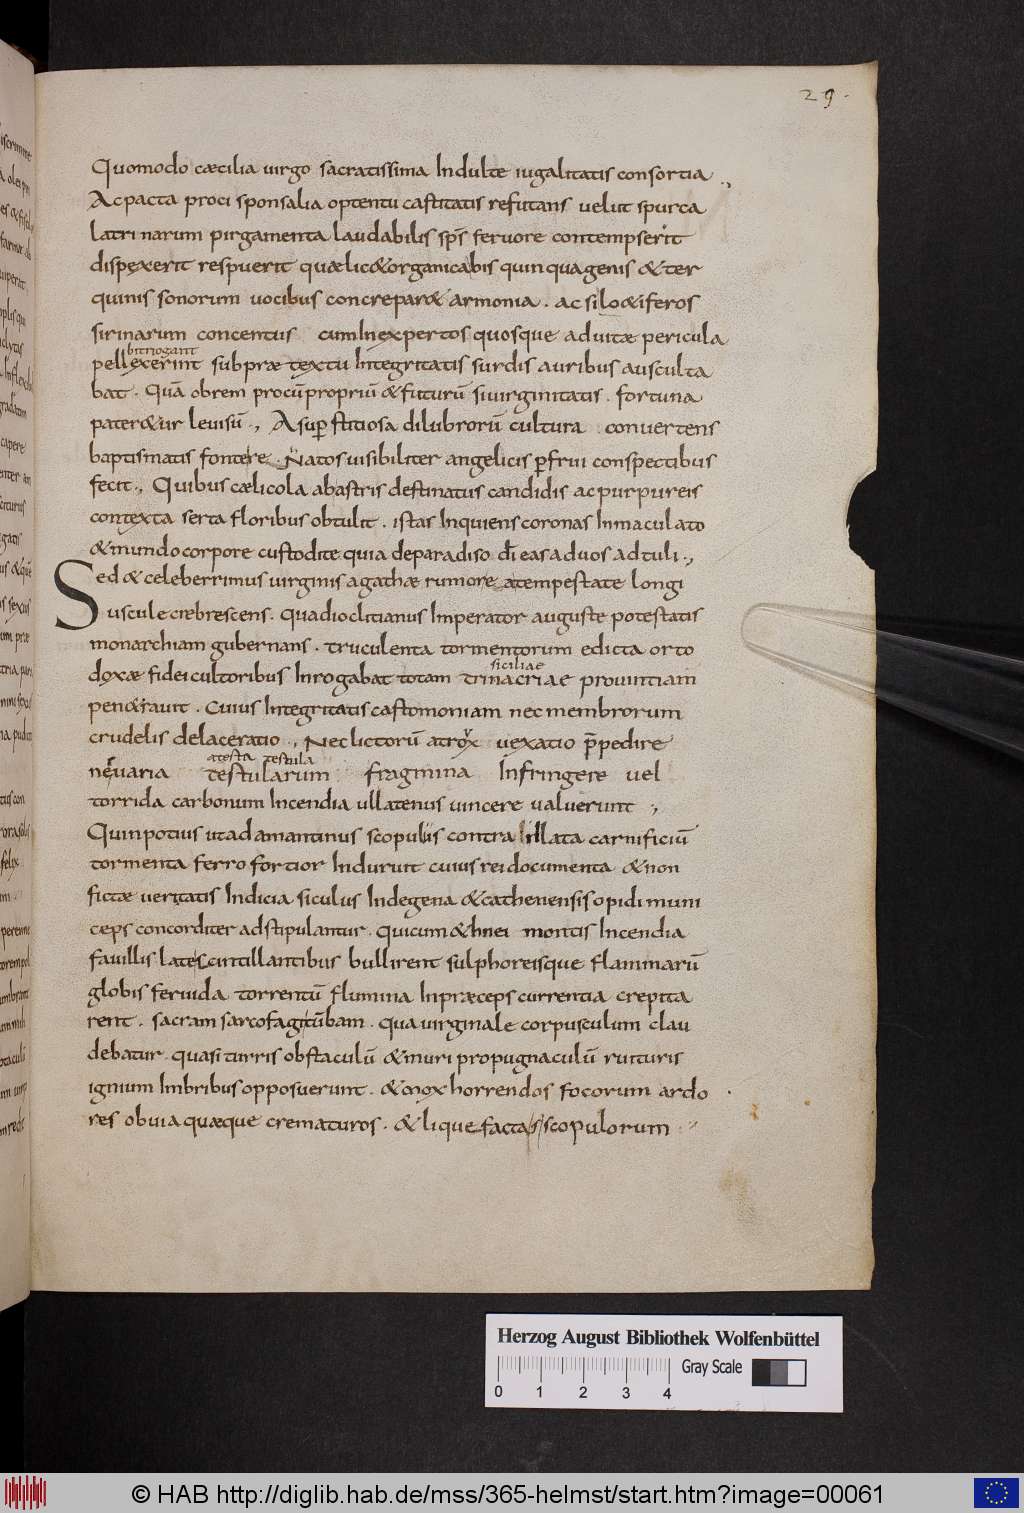 29.
Quomodo cæcilia uirgo sacratissima Indulte iugalitatis consortia
Ac pacta proci sponsalia optentu castitatis refutans uelut spurca
latrinarum pirgamenta laudabilis sp̄s feruore contempserit
dispexerit respuerit quælic& organica bis quinquagenis & ter
quinis sonorum uocibus concrepar& armonia. ac si lo&iferos
sirinarum concentus cum Inexpertos quosque ad uitæ pericula
pellexerint sub præ textu Integritatis surdis auribus ausculta
bat. Quā obrem procū propriū & futurū si uirginitatis. fortuna
pater&ur leuisū., A sup stitiosa dilubrorū cultura conuertens
baptismatis fontere. Natos uisibiliter angelicis pfrui conspectibus
fecit., Quibus cælicola abastris destinatus candidis ac purpureis
contexta serta floribus obtulit. istas Inquiens coronas Inmaculato
& mundo corpore custodite quia de paradiso dī eas ad uos adtuli.,
Sed & celeberrimus uirginis agathæ rumore a tempestate longi
uscule crebrescens. Qua dioclitianus Imperator auguste potestatis
monarchiam gubernans. truculenta tormentorum edicta orto
siciliae
doxæ fidei cultoribus Inrogabat totam trinacriae prouintiam
pen&rauit. Cuius Integritatis castomoniam nec membrorum
crudelis delaceratio., Nec lictorū atrox uexatio p̄pedire
a testa testula
nequaria testularum fragmina Infringere uel
torrida carbonum Incendia ullatenus uincere ualuerunt .,
Quin potius ut adamantinus scopulus contra Illata carnificiū
tormenta ferro fortior Induruit cuius rei documenta & non
fictæ ueritatis Indicia siculus Indegena & cathenensis opidi muni
ceps concorditer adstipulantur. Qui cum &hnei montis Incendia
fauillis late scintillantibus bullirent sulphoreisque flammarū
globis feruida torrentū flumina In præceps currentia crepita
rent. sacram sarcofagi tūbam. qua uirginale corpusculum clau
debatur. quasi turris obstaculū & muri propugnaculū ruituris
ignium Imbribus opposuerunt. & mox horrendos focorum ardo
res obuia quæque crematuros. & lique factas scopulorum
Herzog August Bibliothek Wolfenbüttel
Gray Scale
0 1 2 3 4
© HAB http://diglib.hab.de/mss/365-helmst/start.htm?image=00061